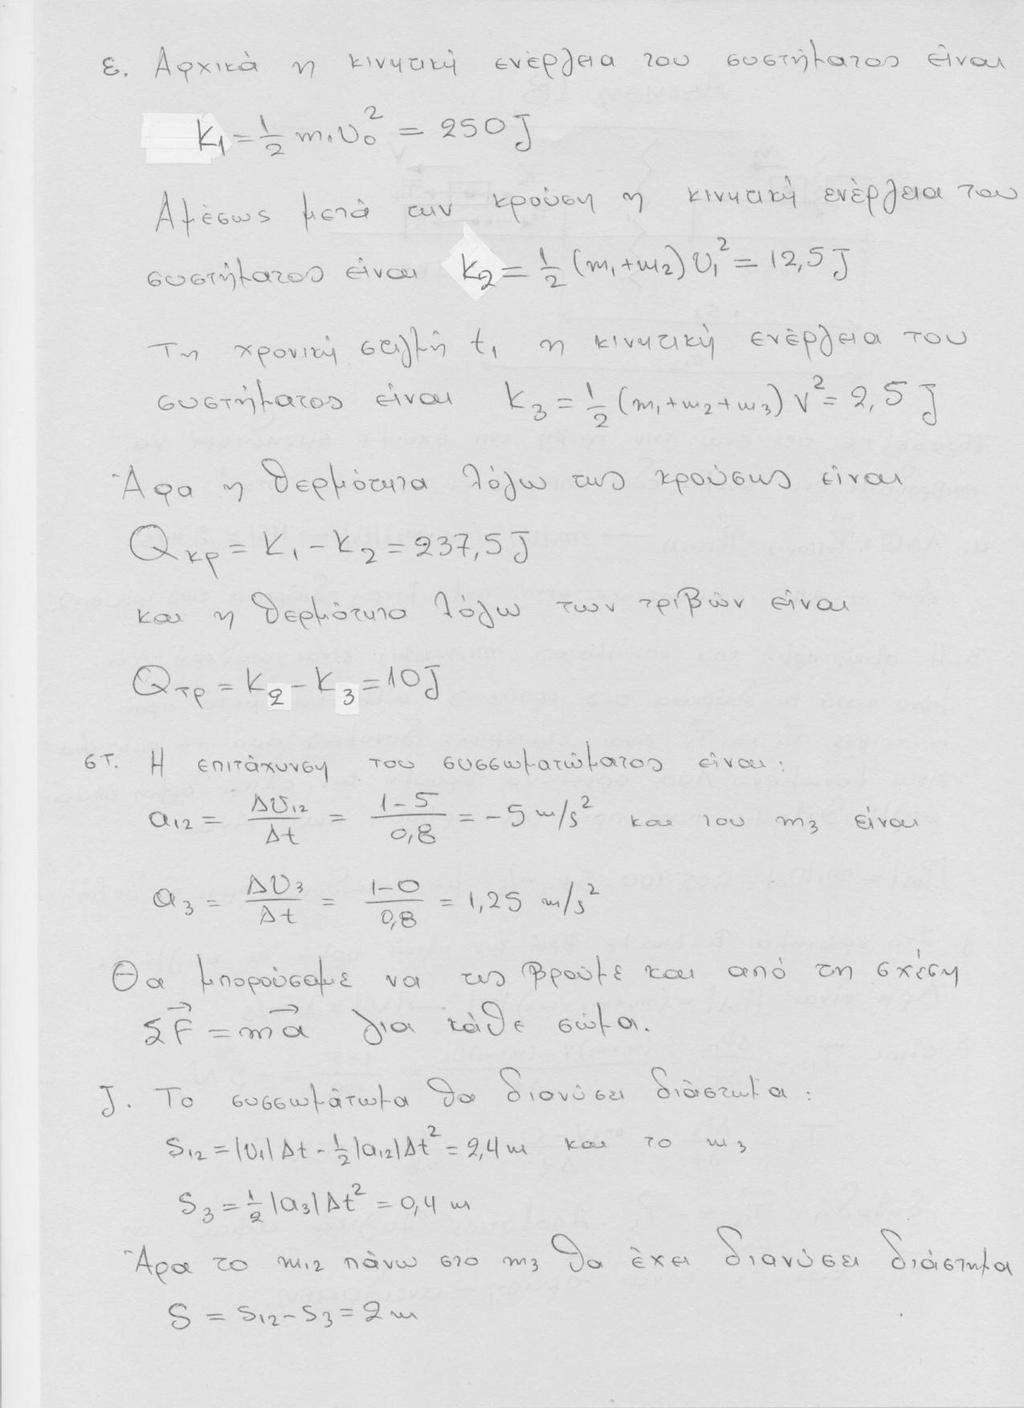 ε. Αρχικά η κινητική ενέργεια του συστήματος είναι
K₁ = 1/2 m₁υ₀² = 250 J
Αμέσως μετά την κρούση η κινητική ενέργεια του
συστήματος είναι K₂ = 1/2 (m₁+m₂) υ₁² = 12,5 J
Τη χρονική στιγμή t₁ η κινητική ενέργεια του
συστήματος είναι K₃ = 1/2 (m₁+m₂+m₃) V² = 2,5 J
Άρα η θερμότητα λόγω της κρούσης είναι
Qκρ = K₁ - K₂ = 237,5 J
και η θερμότητα λόγω των τριβών είναι
Qτρ = K₂ - K₃ = 10 J
στ. Η επιτάχυνση του συσσωματώματος είναι:
a₁₂ = Δυ₁₂/Δt = (1-5)/0,8 = -5 m/s² και του m₃ είναι
a₃ = Δυ₃/Δt = (1-0)/0,8 = 1,25 m/s²
Θα μπορούσαμε να τις βρούμε και από τη σχέση
ΣF⃗ = ma⃗ για κάθε σώμα.
J. Το συσσωμάτωμα θα διανύσει διάστημα:
S₁₂ = |υ₁|Δt - 1/2|a₁₂|Δt² = 2,4 m και το m₃
S₃ = 1/2|a₃|Δt² = 0,4 m
Άρα το m₁₂ πάνω στο m₃ θα έχει διανύσει διάστημα
S = S₁₂ - S₃ = 2 m